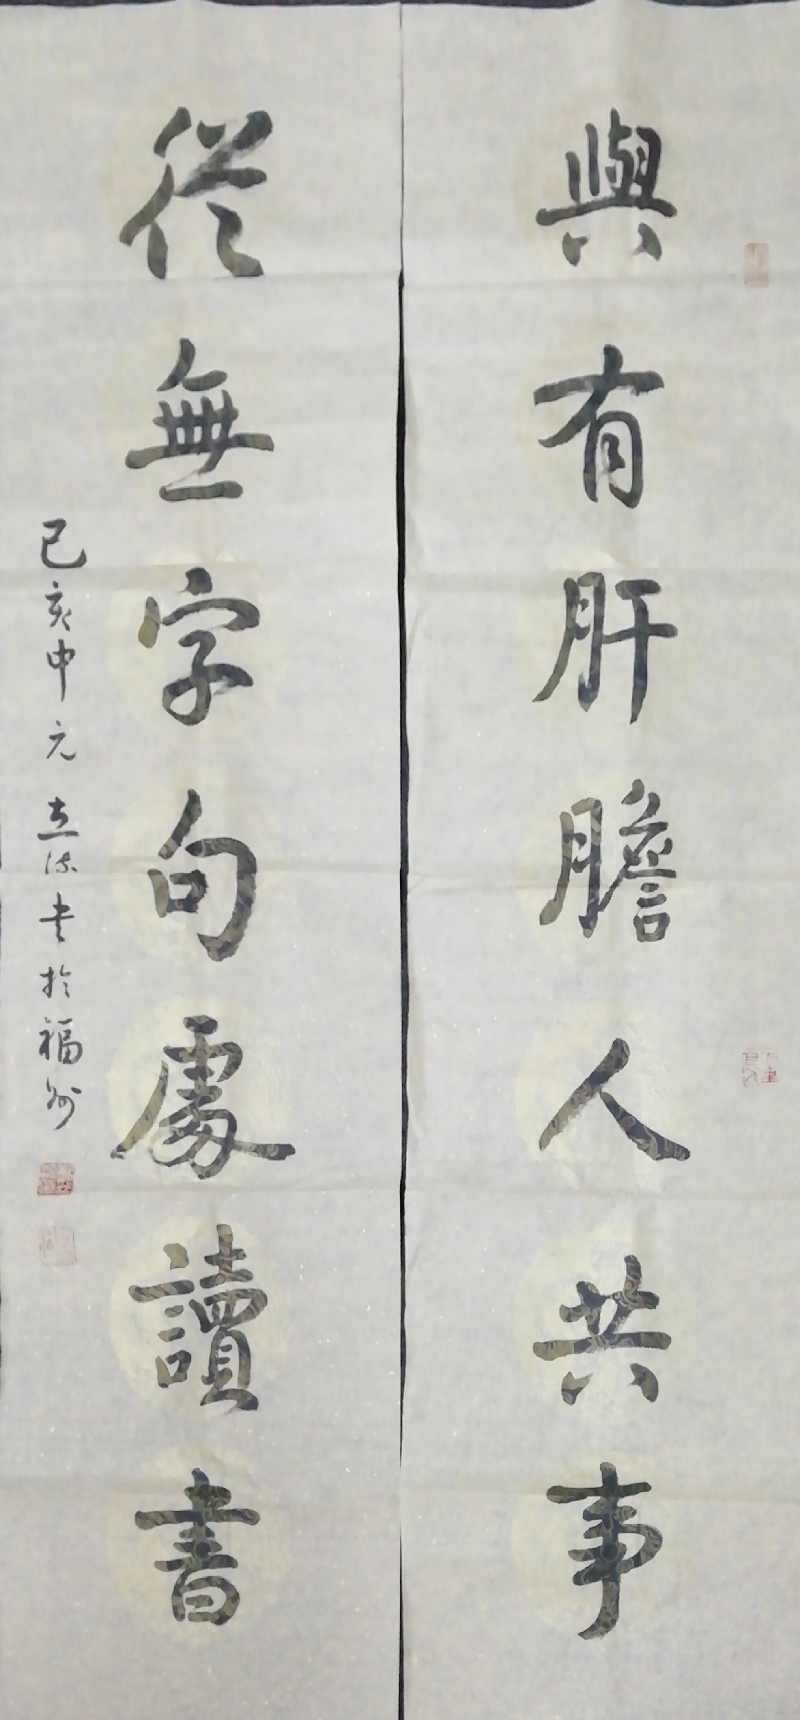 與有肝膽人共事
從無字句處讀書
己亥中元 立法书於福州